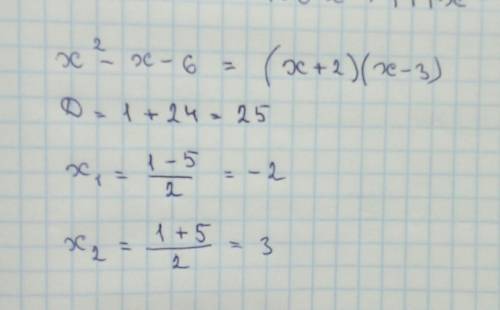 x² - x - 6 = (x+2)(x-3)
D = 1 + 24 = 25
x₁ = (1-5)/2 = -2
x₂ = (1+5)/2 = 3